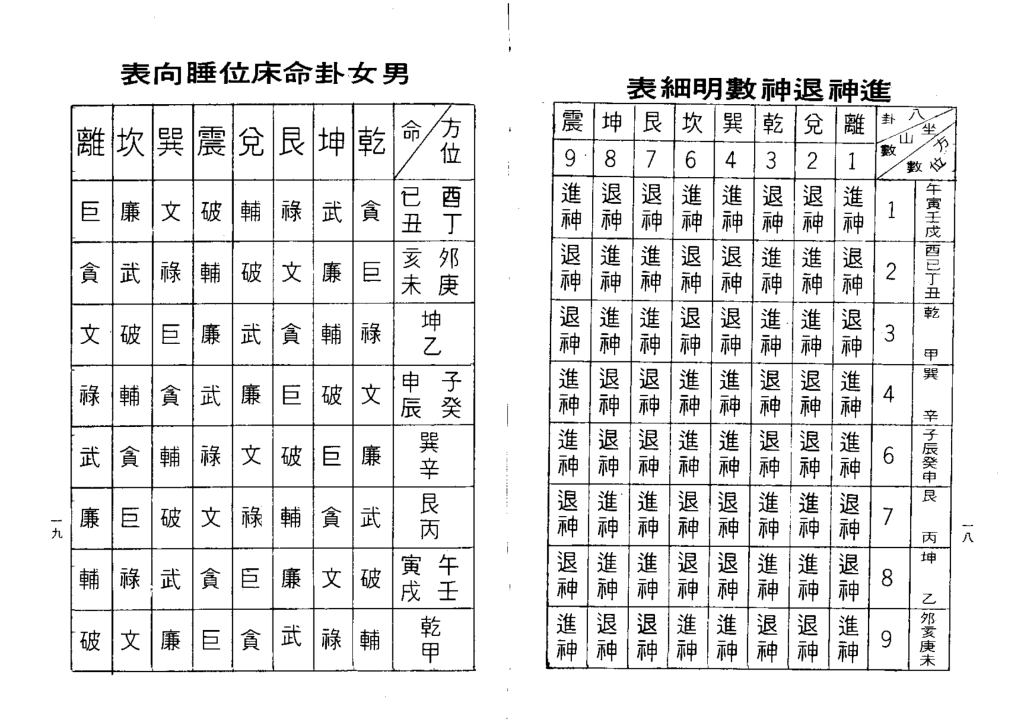 進神退神數明細表
八卦 坐山 方位 數 數
離 兌 乾 巽 坎 艮 坤 震
1 2 3 4 6 7 8 9
午寅壬戌 1 進神 退神 退神 進神 進神 退神 退神 進神
酉已丁丑 2 退神 進神 進神 退神 退神 進神 進神 退神
乾甲 3 退神 進神 進神 退神 退神 進神 進神 退神
巽辛 4 進神 退神 退神 進神 進神 退神 退神 進神
子辰癸申 6 進神 退神 退神 進神 進神 退神 退神 進神
艮丙 7 退神 進神 進神 退神 退神 進神 進神 退神
坤乙 8 退神 進神 進神 退神 退神 進神 進神 退神
夘亥庚未 9 進神 退神 退神 進神 進神 退神 退神 進神
一八
男女卦命床位睡向表
方位 命 乾 坤 艮 兌 震 巽 坎 離
酉丁已丑 貪 武 祿 輔 破 文 廉 巨
夘庚亥未 巨 廉 文 破 輔 祿 武 貪
坤乙 祿 輔 貪 武 廉 巨 破 文
子癸申辰 文 破 巨 廉 武 貪 輔 祿
巽辛 廉 巨 破 文 祿 輔 貪 武
艮丙 武 貪 輔 祿 文 破 巨 廉
午壬寅戌 破 文 廉 巨 貪 武 祿 輔
乾甲 輔 祿 武 貪 巨 廉 文 破
一九